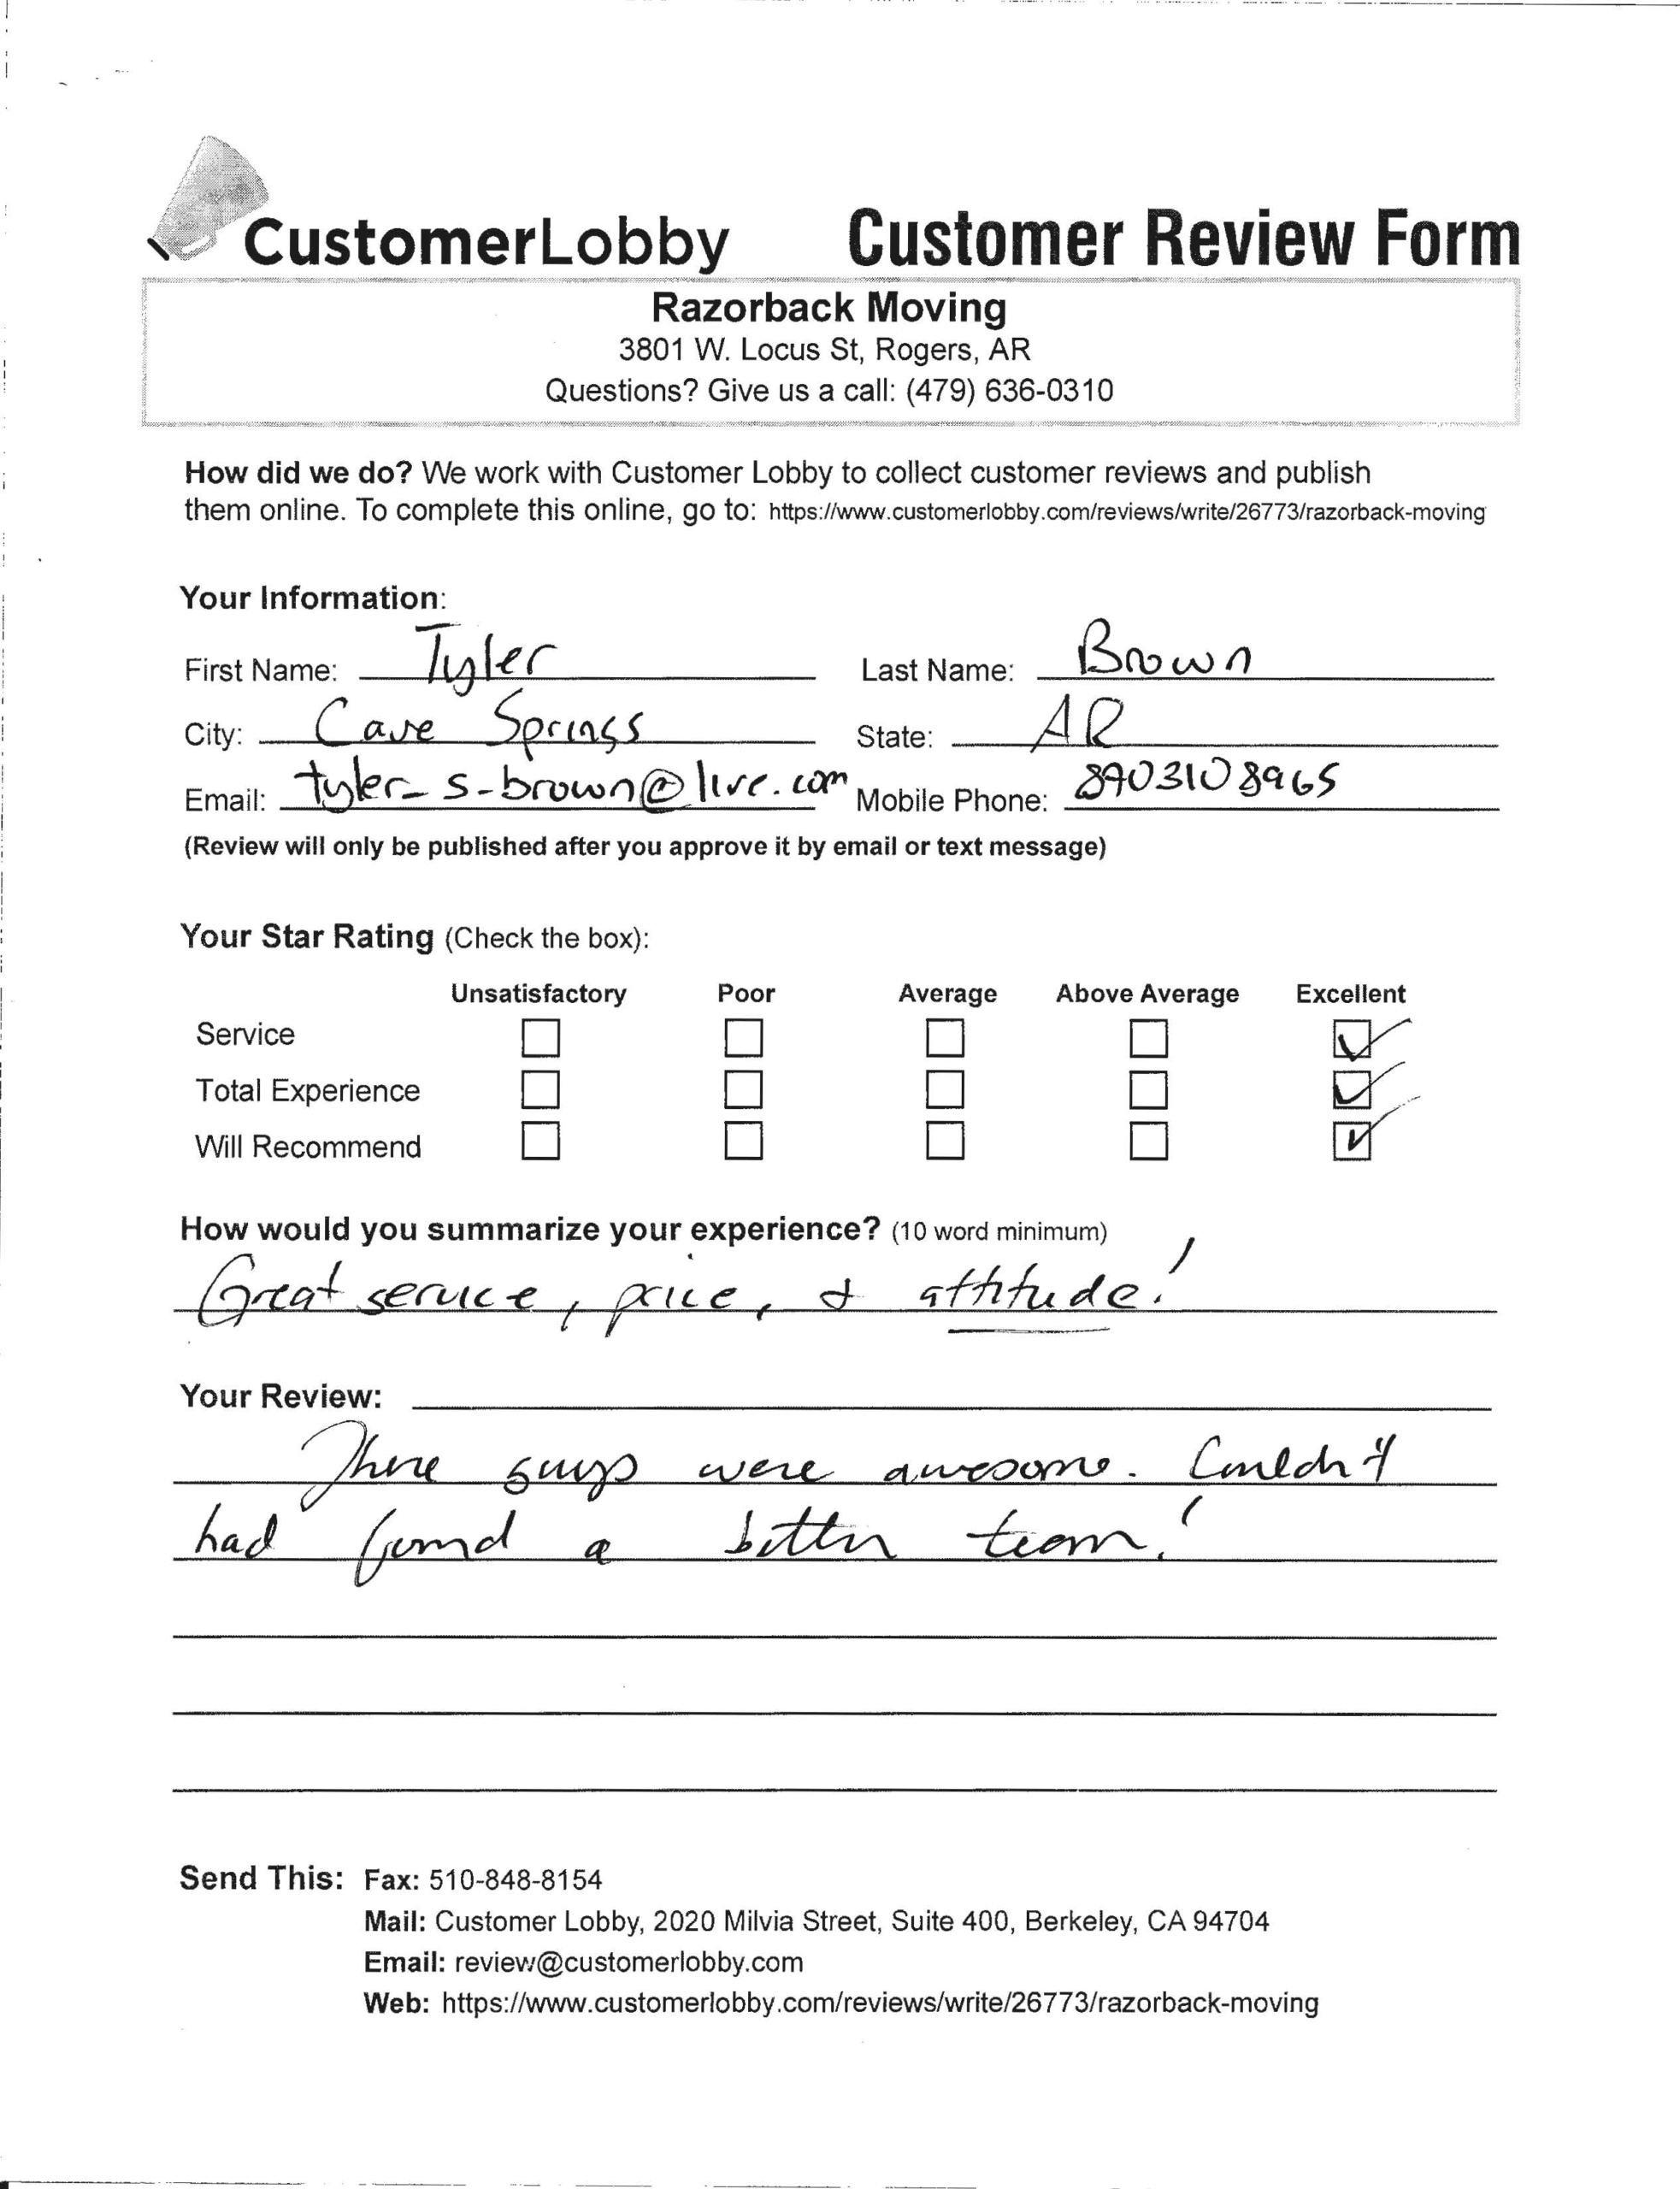 CustomerLobby Customer Review Form
Razorback Moving
3801 W. Locus St, Rogers, AR
Questions? Give us a call: (479) 636-0310
How did we do? We work with Customer Lobby to collect customer reviews and publish
them online. To complete this online, go to: https://www.customerlobby.com/reviews/write/26773/razorback-moving
Your Information:
First Name: Tyler Last Name: Brown
City: Cave Springs State: AR
Email: tyler_s_brown@live.com Mobile Phone: 8903108965
(Review will only be published after you approve it by email or text message)
Your Star Rating (Check the box):
Unsatisfactory Poor Average Above Average Excellent
Service
Total Experience
Will Recommend
How would you summarize your experience? (10 word minimum)
Great service, price, & attitude!
Your Review:
These guys were awesome. Couldn't
had found a better team!
Send This: Fax: 510-848-8154
Mail: Customer Lobby, 2020 Milvia Street, Suite 400, Berkeley, CA 94704
Email: review@customerlobby.com
Web: https://www.customerlobby.com/reviews/write/26773/razorback-moving